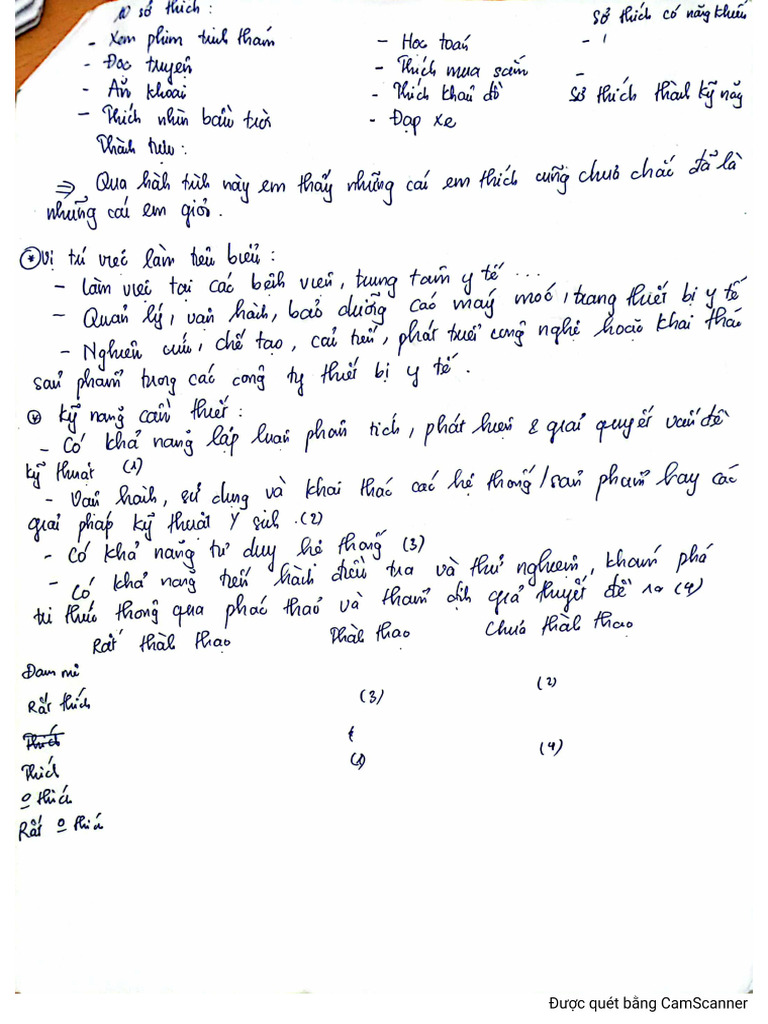 sở thích :
Sở thích có năng khiếu
- Xem phim trinh thám
- Học toán
-
- Đọc truyện
- Thích mua sắm
-
- Ăn khoai
- Thích khâu đồ
Sở thích thành kỹ năng
- Thích nhìn bầu trời
- Đạp xe
Thành tựu :
⇒ Qua hành trình này em thấy những cái em thích cũng chưa chắc đã là
những cái em giỏi.
* Vị trí việc làm tiêu biểu :
- Làm việc tại các bệnh viện, trung tâm y tế ...
- Quản lý, vận hành, bảo dưỡng các máy móc, trang thiết bị y tế
- Nghiên cứu, chế tạo, cải tiến, phát triển công nghệ hoặc khai thác
sản phẩm trong các công ty thiết bị y tế.
* Kỹ năng cần thiết :
- Có khả năng lập luận phân tích, phát hiện & giải quyết vấn đề
kỹ thuật (1)
- Vận hành, sử dụng và khai thác các hệ thống/sản phẩm hay các
giải pháp kỹ thuật Y sinh .(2)
- Có khả năng tư duy hệ thống (3)
- Có khả năng tiến hành điều tra và thử nghiệm, khám phá
tri thức thông qua phác thảo và thẩm định giả thuyết đề ra (4)
Rất thành thạo
Thành thạo
Chưa thành thạo
Đam mê
(2)
Rất thích
(3)
Thích
(4)
Thích
(1)
o thích
Rất o thích
Được quét bằng CamScanner